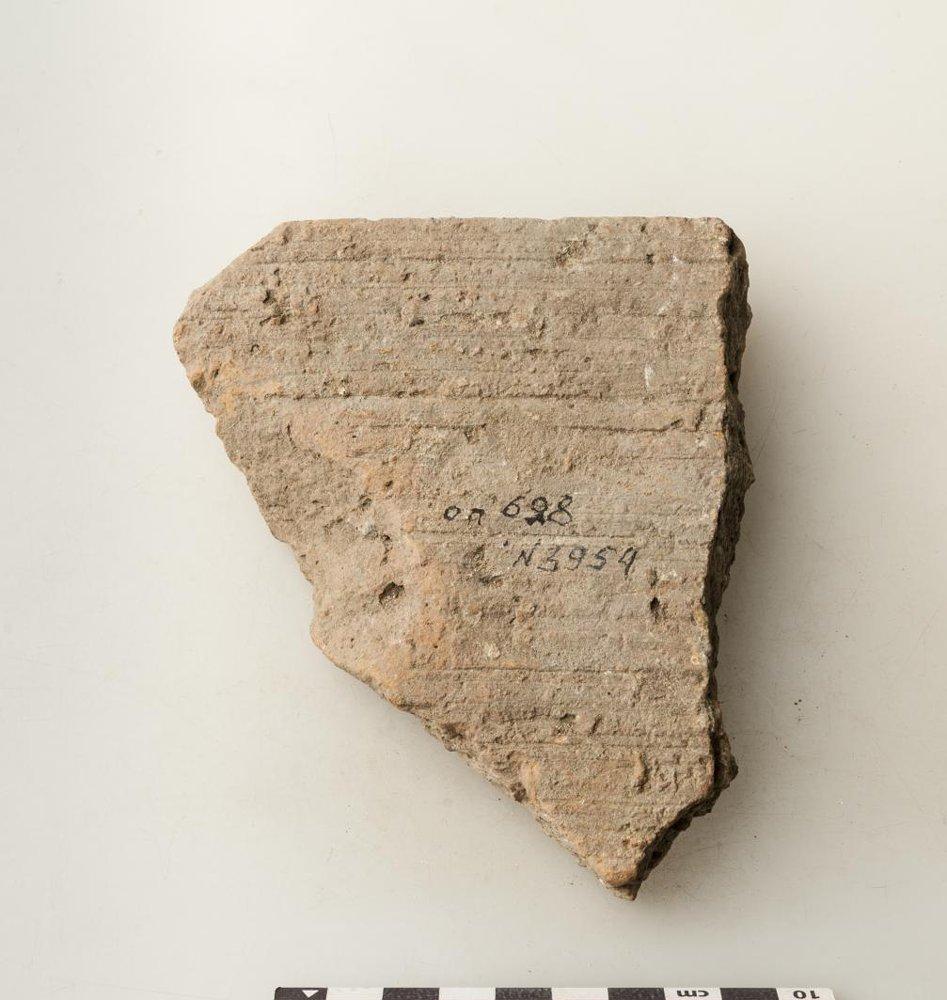 оп 628
N3954
cm
10